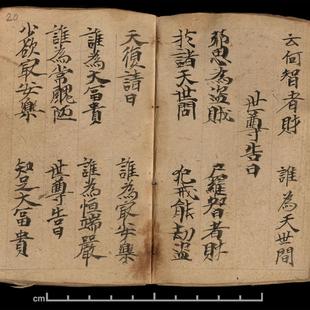 云何智者財　誰為天世間
世尊告曰
邪思為盜賊　尸羅智者財
於諸天世間　犯戒能劫盜
天復請曰　誰為最安樂
誰為大富貴　誰為恒端嚴
誰為常醜陋　世尊告曰
少欲最安樂　知足大富貴
20
cm